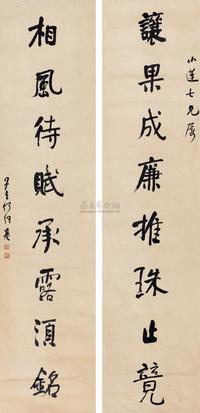 小蓮七兄屬
讓果成廉推珠止競
相風待賦承露須銘
子貞何紹基